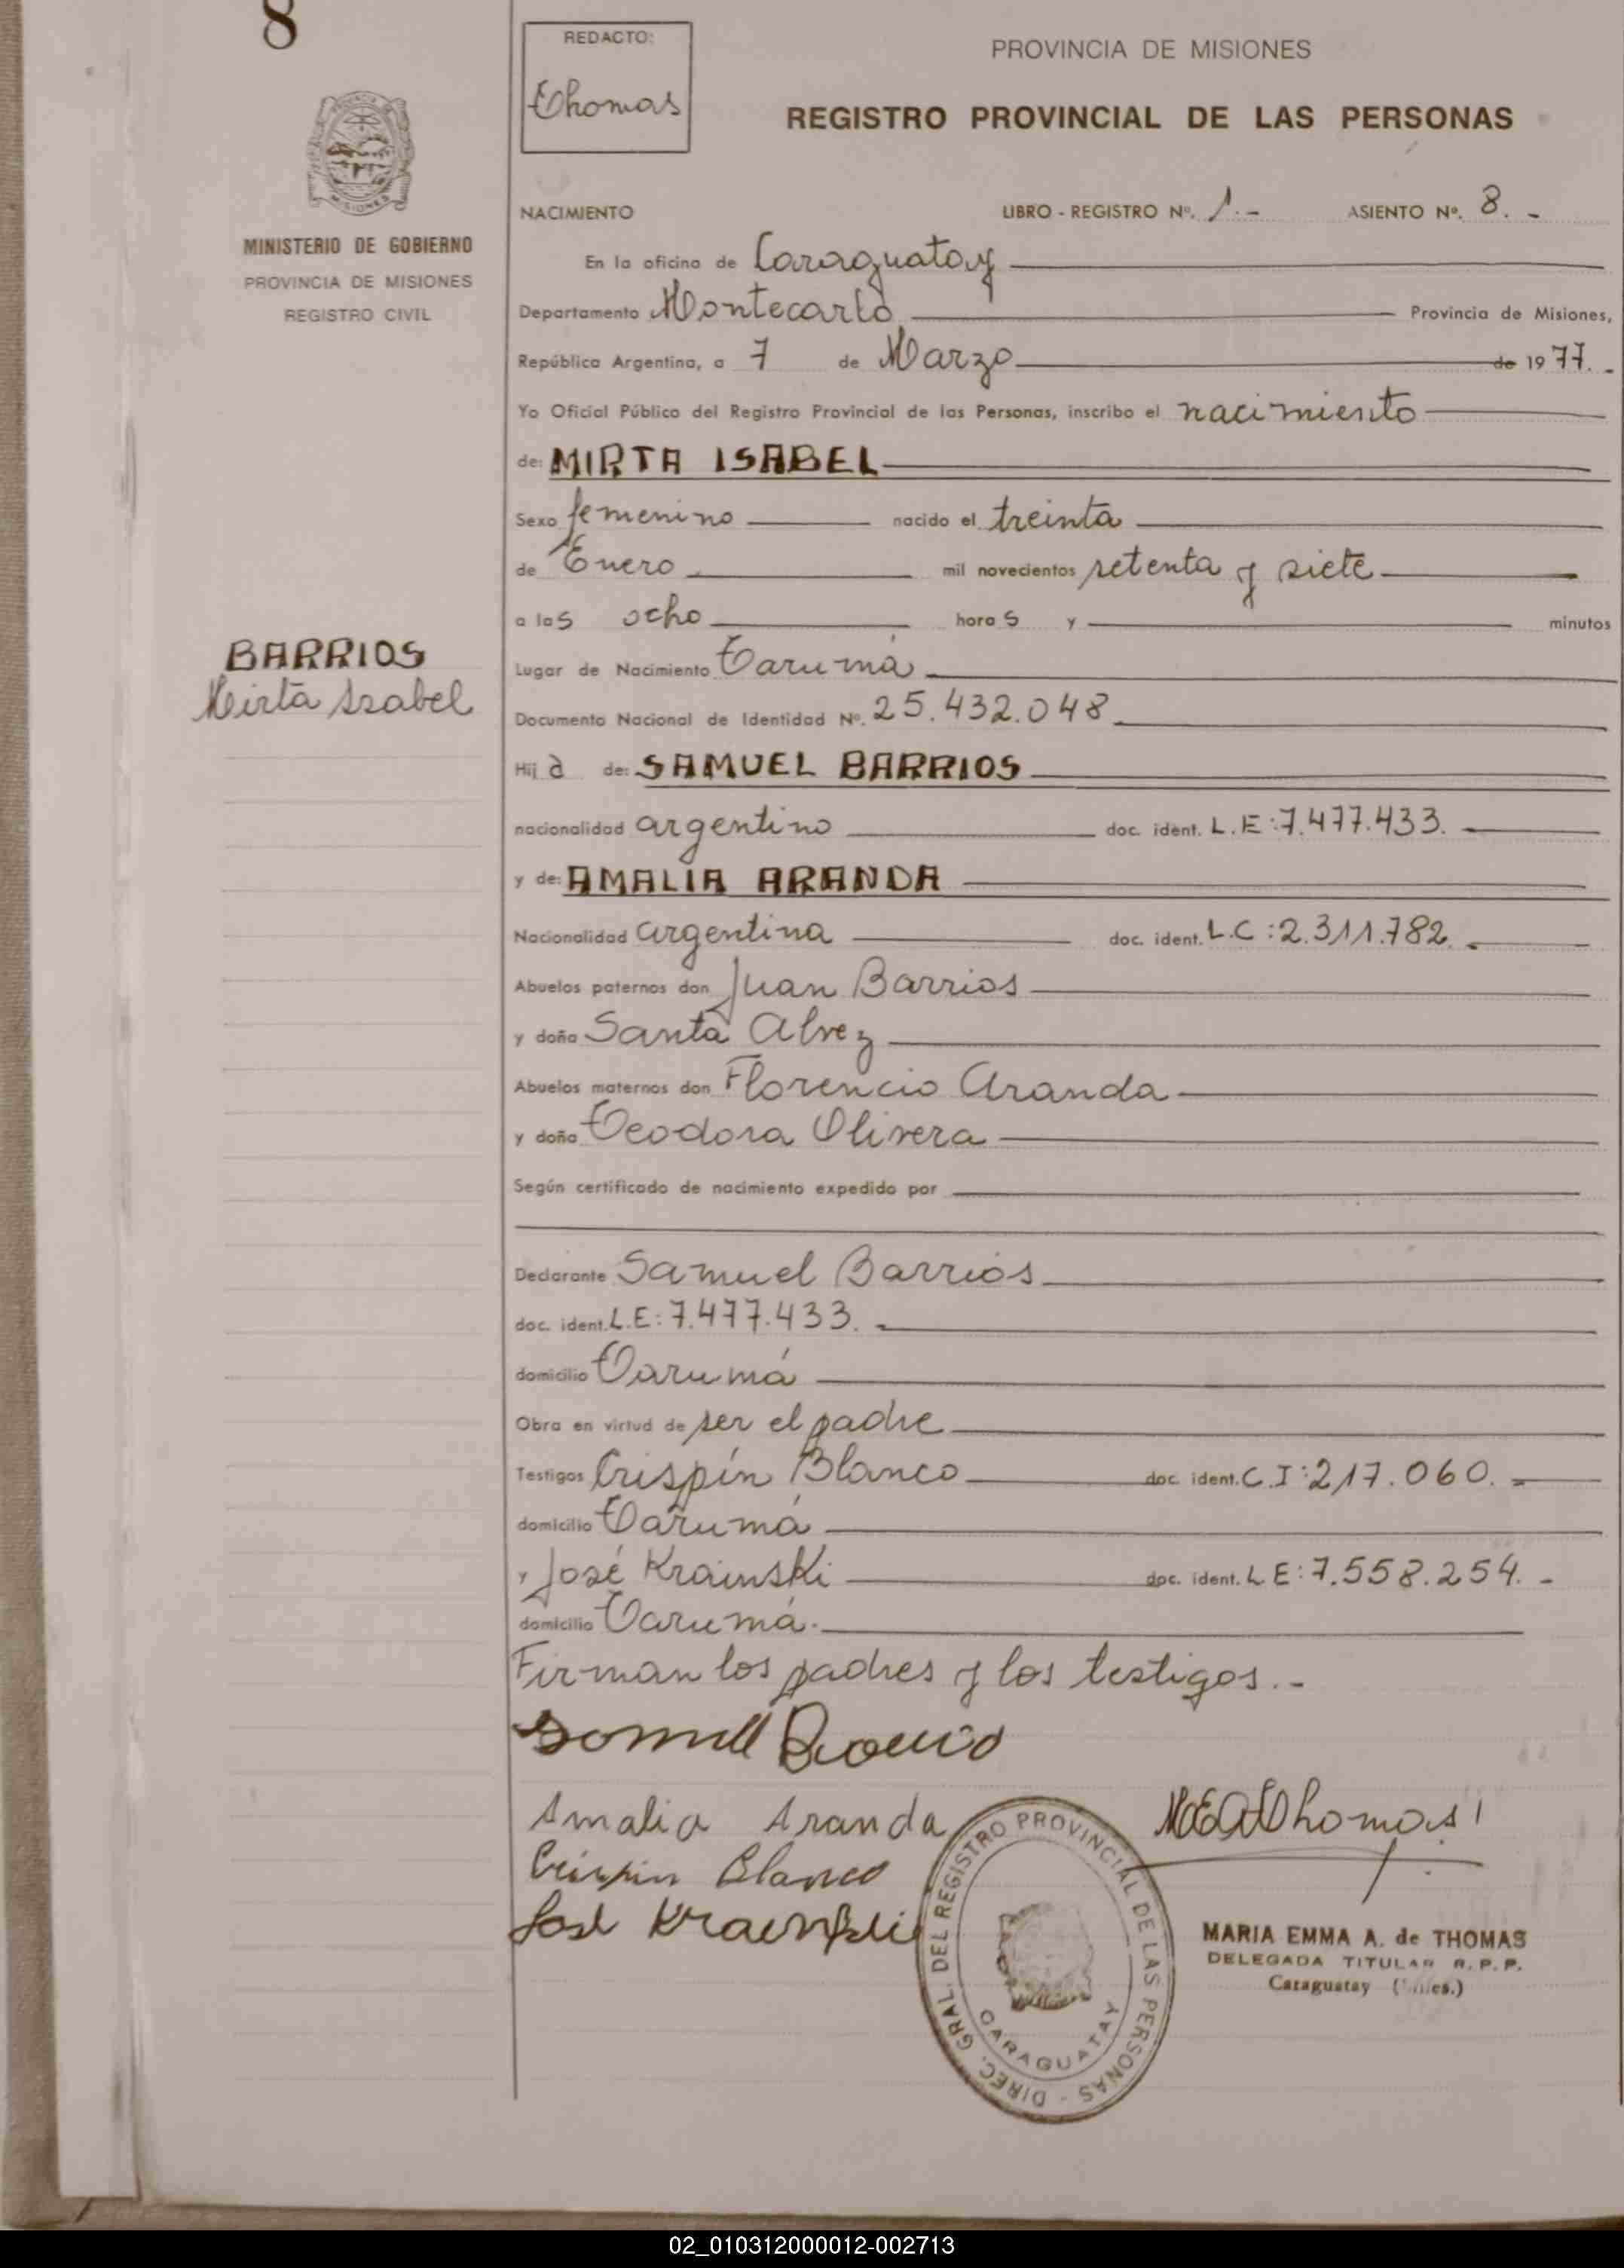 8
REDACTO:
Thomas
PROVINCIA DE MISIONES
REGISTRO PROVINCIAL DE LAS PERSONAS
MISIONES
MINISTERIO DE GOBIERNO
PROVINCIA DE MISIONES
REGISTRO CIVIL
NACIMIENTO LIBRO - REGISTRO Nº. 1.- ASIENTO Nº. 8.-
En la oficina de Caraguatay
Departamento Montecarlo Provincia de Misiones,
República Argentina, a 7 de Marzo de 1977.-
Yo Oficial Público del Registro Provincial de las Personas, inscribo el nacimiento
de: MIRTA ISABEL
Sexo femenino nacido el treinta
de Enero mil novecientos setenta y siete
a las ocho horas y minutos
BARRIOS
Mirta Isabel
Lugar de Nacimiento Tarumá
Documento Nacional de Identidad Nº. 25.432.048
Hija de: SAMUEL BARRIOS
nacionalidad argentino doc. ident. L.E:7.477.433.
y de: AMALIA ARANDA
Nacionalidad argentina doc. ident. L.C:2.311.782.
Abuelos paternos don Juan Barrios
y doña Santa Alvez
Abuelos maternos don Florencio Aranda
y doña Teodora Olivera
Según certificado de nacimiento expedido por
Declarante Samuel Barrios
doc. ident. L.E:7.477.433.
domicilio Tarumá
Obra en virtud de ser el padre
Testigos Crispín Blanco doc. ident. C.I:217.060.-
domicilio Tarumá
y José Krainski doc. ident. LE:7.558.254.-
domicilio Tarumá.
Firman los padres y los testigos.-
Amalia Aranda
Crispin Blanco
José
DIREC. GRAL. DEL REGISTRO PROVINCIAL DE LAS PERSONAS -
CARAGUATAY
MARIA EMMA A. de THOMAS
DELEGADA TITULAR R.P.P.
Caraguatay (Mnes.)
02_010312000012-002713